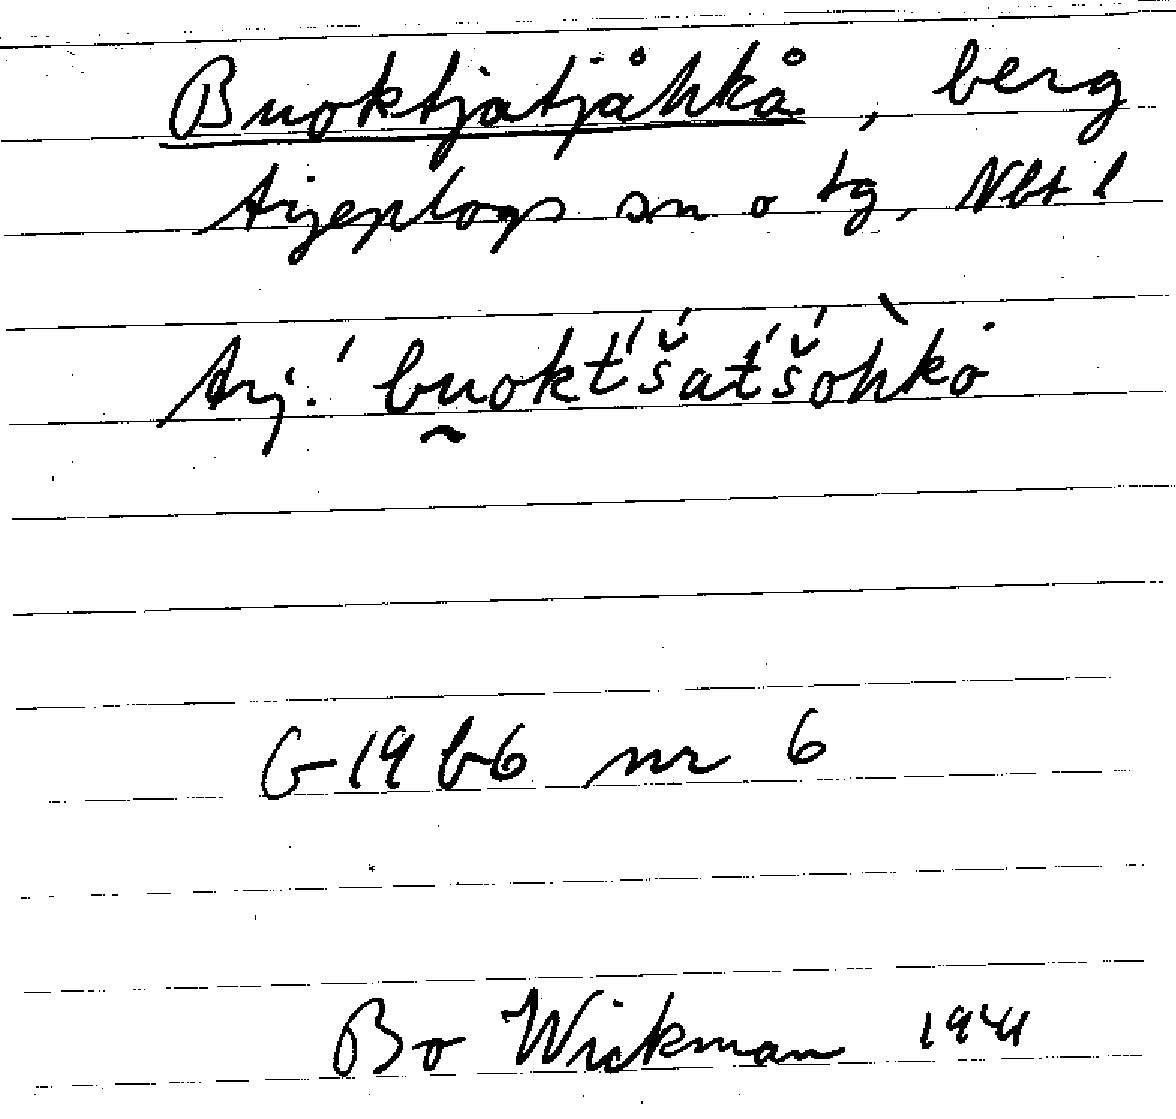 Buoktjatjåhkå, berg
Arjeplogs sn o tg, Nbt l
Arj. ˈbu̯okt́š́at́š́oh̀kȯ
G 19 b6 nr 6
Bo Wickman 1941